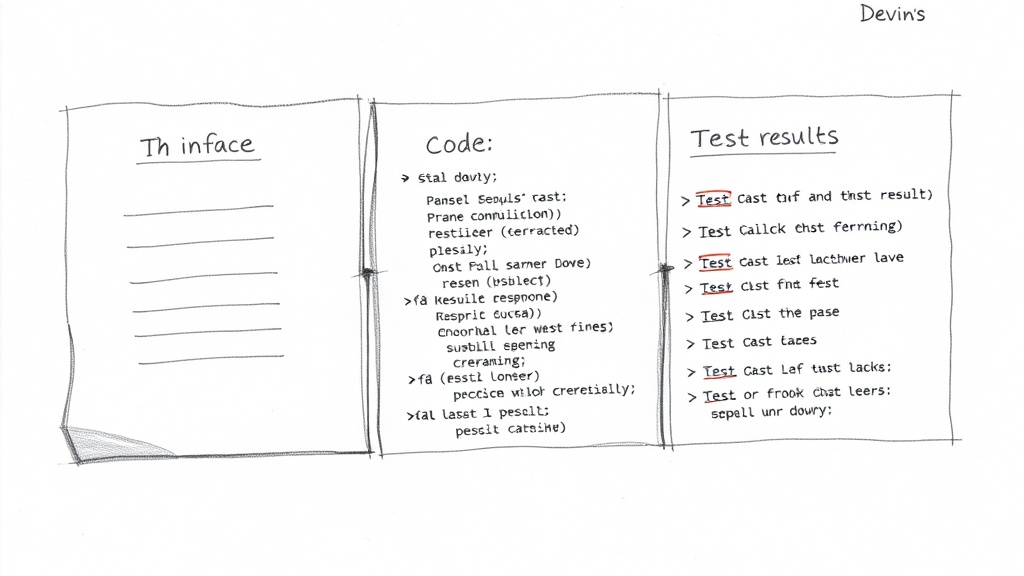 Devin's
Th inface
Code:
> stal davty;
Pansel Sequls' cast;
Prane conrulictlon))
restilicer (cerracted)
plesily;
Onst Pall samer Dove)
resen (bsblect)
>fa Kesuile respone)
Respric
Cnoorhal Ler west fines;
susbill spening
creraming;
>fa (esstl Lonser)
peccice creretially;
>(al lasst I pescit;
pescit
Test results
> Test Cast and thst result)
> Test Callck chst ferrning)
> Test Cast lest lacthwer lave
> Test Clst fnt fest
> Test Clst the pase
> Test Cast taces
> Test Cast Laf tust lacks:
> Test or frook Chat leers:
sepell unr dowry: